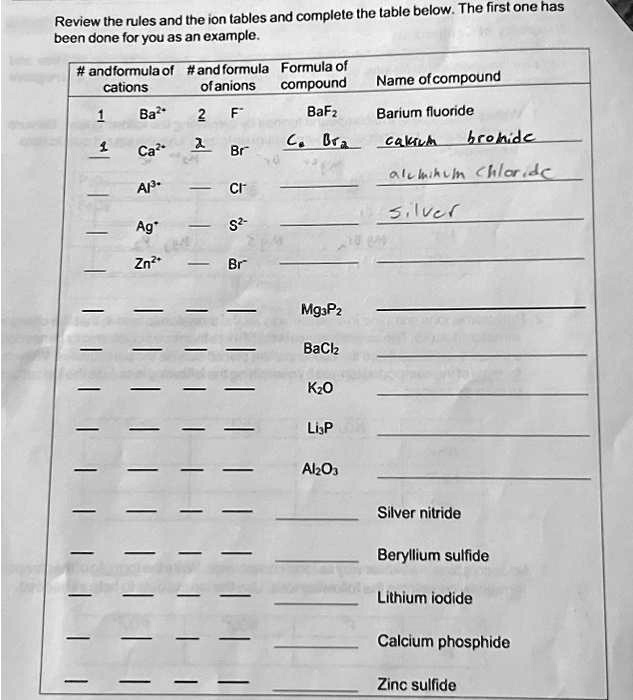 Review the rules and the ion tables and complete the table below. The first one has
been done for you as an example.
# and formula of cations # and formula of anions Formula of compound Name of compound
1 Ba²⁺ 2 F⁻ BaF₂ Barium fluoride
1 Ca²⁺ 2 Br⁻ Ca Br₂ calcium bromide
Al³⁺ Cl⁻ aluminum chloride
Ag⁺ S²⁻ silver
Zn²⁺ Br⁻
Mg₃P₂
BaCl₂
K₂O
Li₃P
Al₂O₃
Silver nitride
Beryllium sulfide
Lithium iodide
Calcium phosphide
Zinc sulfide